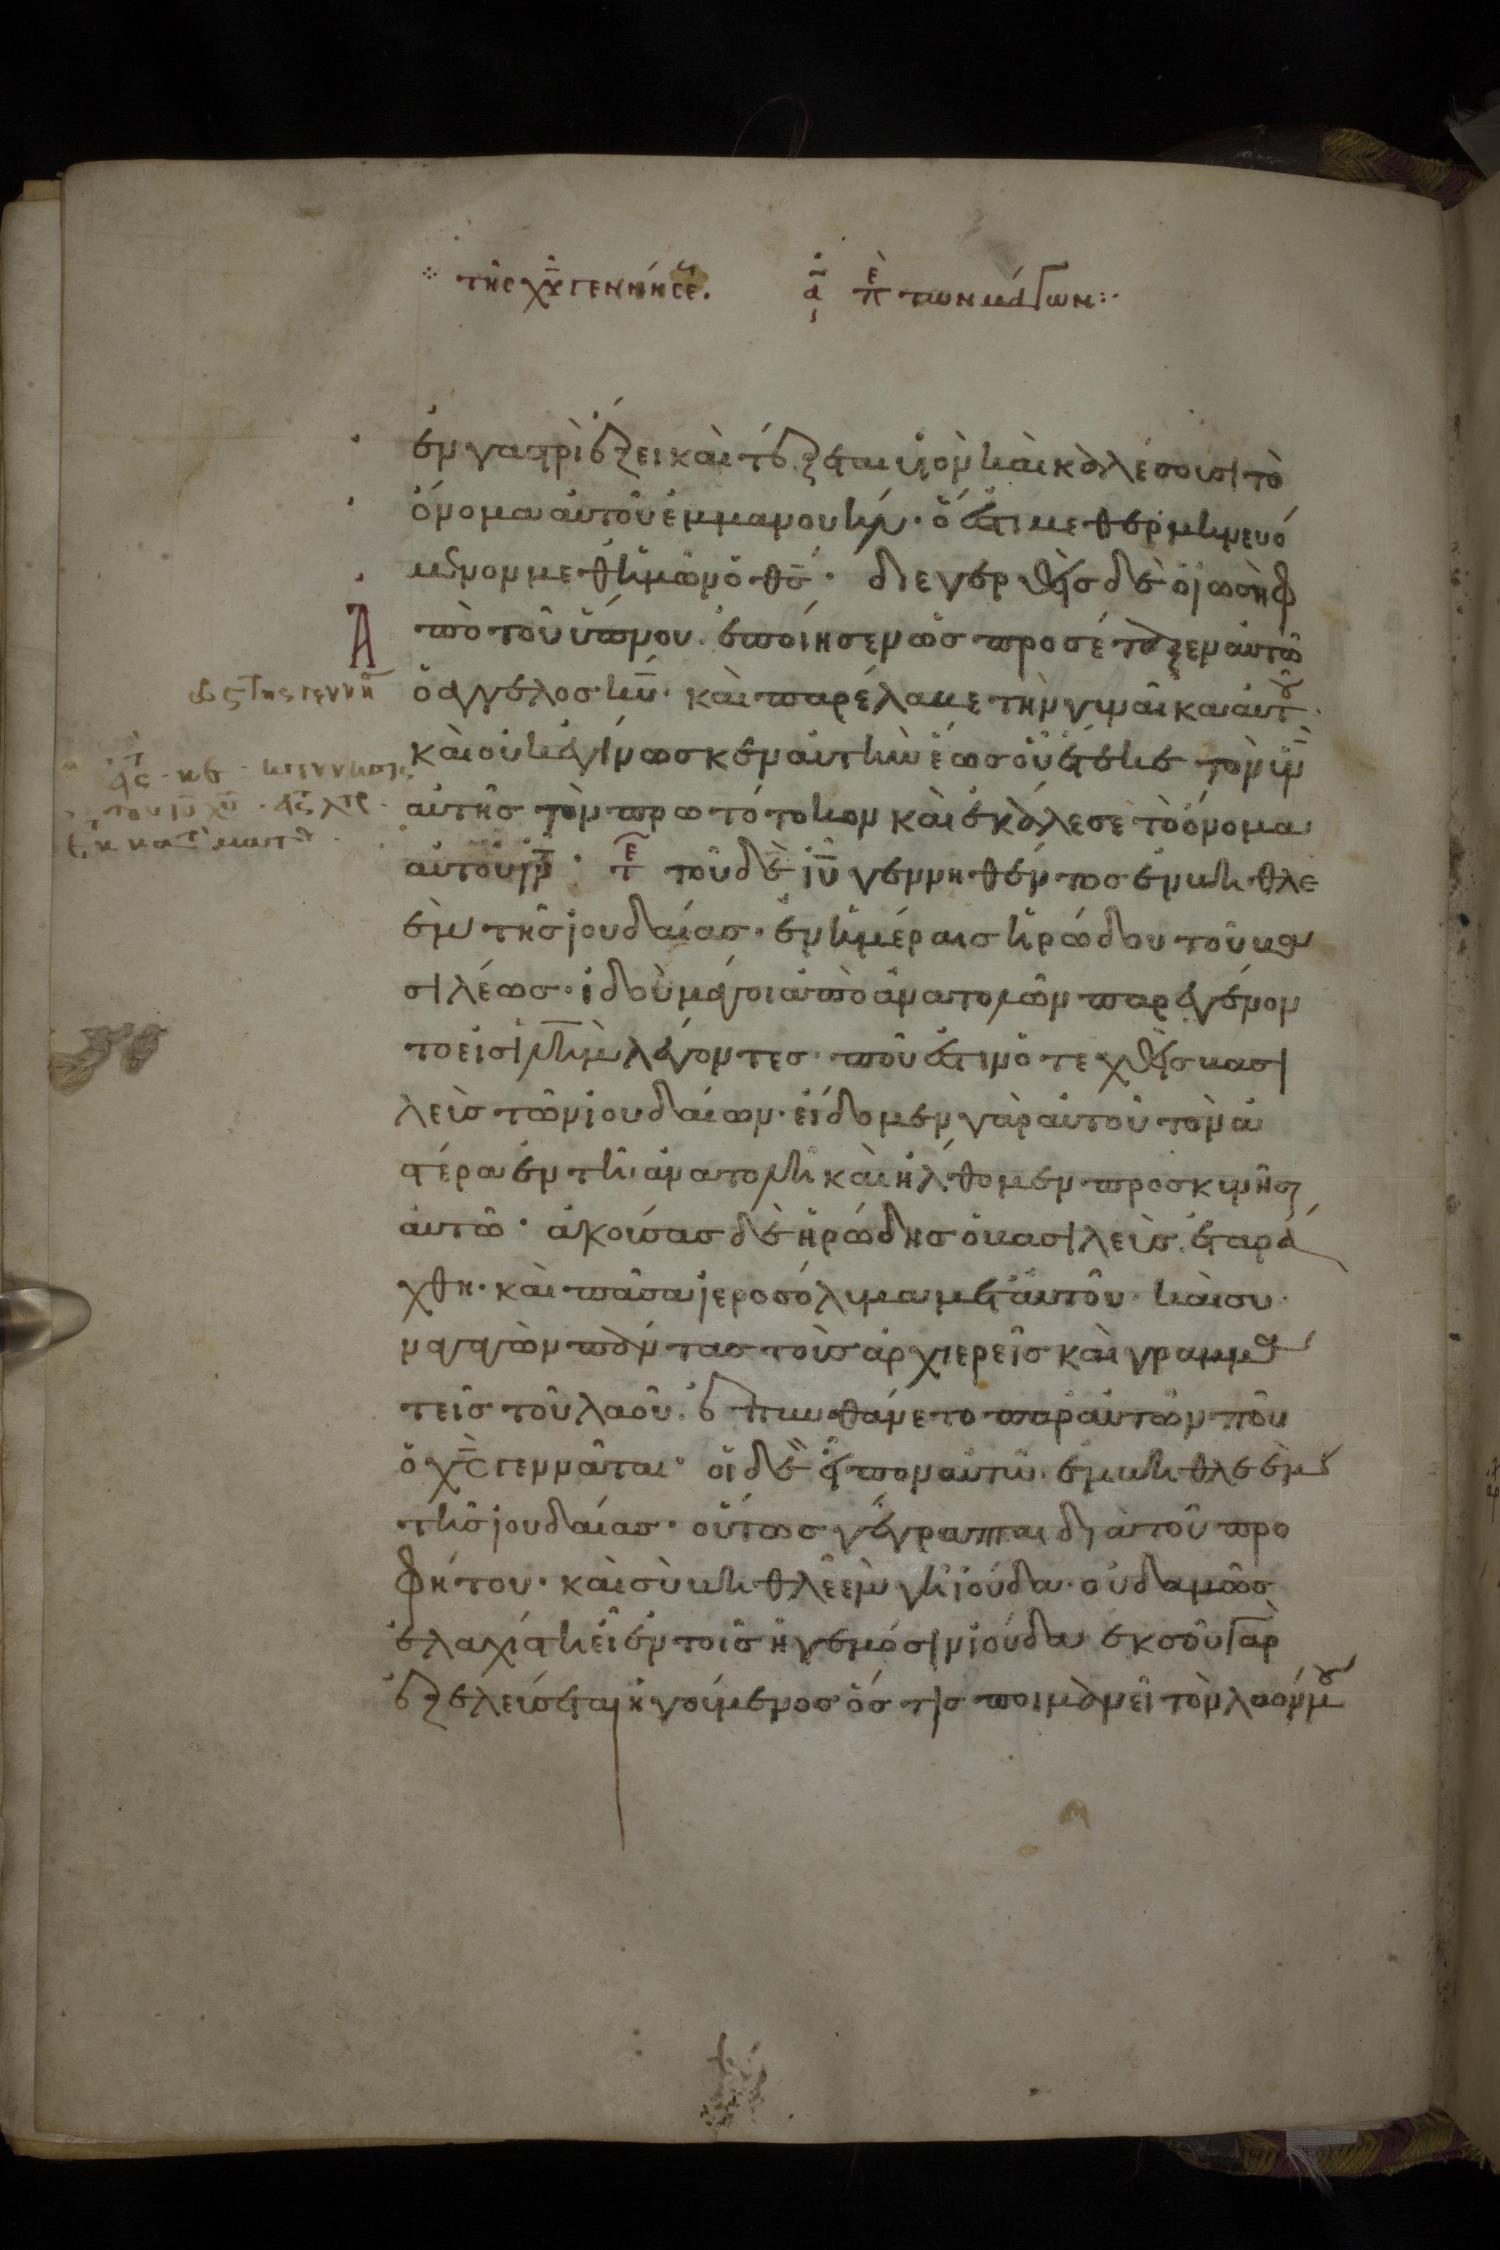 τῆς χυ γεννήσε.
α περ των μάγων:
ἐν γαστρὶ ἕξει καὶ τέξεται υἱὸν καὶ καλέσουσι τὸ
ὄνομα αὐτοῦ ἐμμανουήλ· ὅ ἐστι μεθερμηνευό
μενον μεθ ἡμῶν ὁ θς· διεγερθεὶς δὲ ὁ ἰωσὴφ
Ἀ
πὸ τοῦ ὕπνου. ἐποίησεν ὡς προσέταξεν αὐτῶ
ὁ ἄγγελος κυ· καὶ παρέλαβε τὴν γυναῖκα αὐτοῦ
καὶ οὐκ ἐγίνωσκεν αὐτὴν ἕως οὗ ἔτεκε τὸν υν
αὐτῆς τὸν πρωτότοκον καὶ ἐκάλεσε τὸ ὄνομα
αὐτοῦ ιν· τε τοῦ δὲ ιυ γεννηθέντος ἐν βηθλε
ὲμ τῆς ἰουδαίας· ἐν ἡμέραις ἡρώδου τοῦ βα
σιλέως· ἰδοὺ μάγοι ἀπὸ ἀνατολῶν παρεγένον
το εἰς ιλημ λέγοντες· ποῦ ἐστιν ὁ τεχθεὶς βασι
λεὺς τῶν ἰουδαίων· εἴδομεν γὰρ αὐτοῦ τὸν ἀ
στέρα ἐν τῆ ἀνατολῆ καὶ ἤλθομεν προσκυνῆσαι
αὐτῶ· ἀκούσας δὲ ἡρώδης ὁ βασιλεὺς ἐταρά
χθη· καὶ πᾶσα ἱεροσόλυμα μετ αὐτοῦ· καὶ συ
ναγαγὼν πάντας τοὺς ἀρχιερεῖς καὶ γραμμα
τεῖς τοῦ λαοῦ. ἐπυνθάνετο παρ αὐτῶν ποῦ
ὁ χς γεννᾶται· οἱ δὲ εἶπον αὐτῶ. ἐν βηθλεὲμ
τῆς ἰουδαίας· οὕτως γέγραπται διὰ τοῦ προ
φήτου· καὶ σὺ βηθλεὲμ γῆ ἰούδα· οὐδαμῶς
ἐλαχίστη εἶ ἐν τοῖς ἡγεμόσιν ἰούδα ἐκ σοῦ γὰρ
ἐξελεύσεται ἡγούμενος ὅστις ποιμανεῖ τὸν λαόν μου